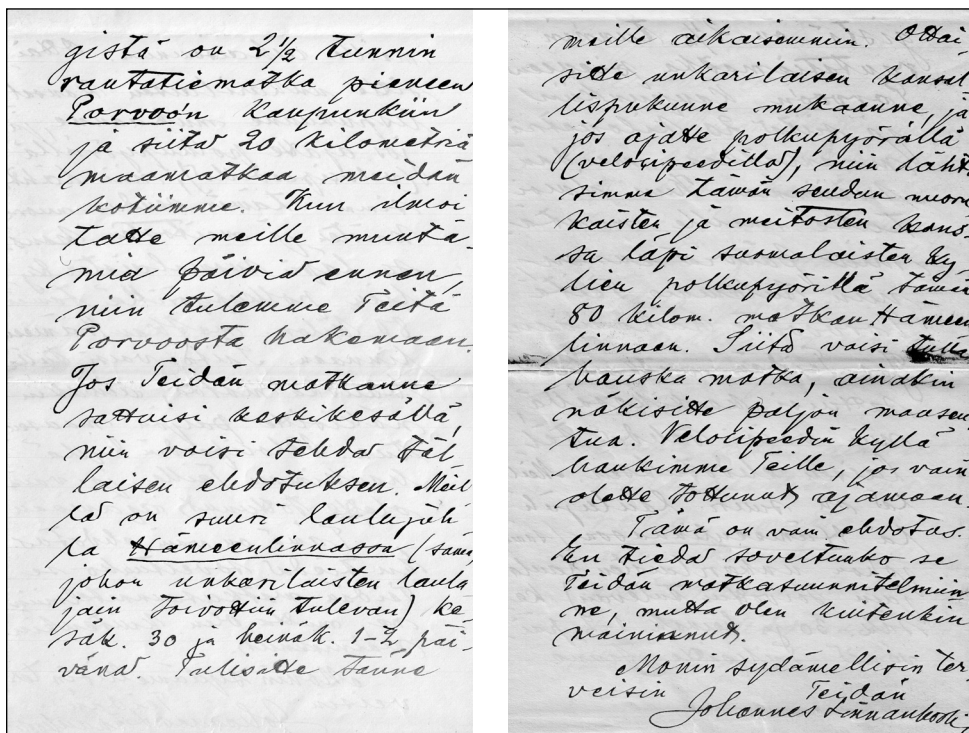 gistä on 2½ tunnin
rantatiematka pieneen
Porvoon kaupunkiin
ja siitä 20 kilometriä
maamatkaa meidän
kotiimme. Kun ilmoi
tatte meille muuta-
mia päiviä ennen,
niin tulemme Teitä
Porvoosta hakemaan.
Jos Teidän matkanne
sattuisi keskikesällä,
niin voisi tehdä täl
laisen ehdotuksen. Meil
lä on suuri laulujuh
la Hämeenlinnassa (sama,
johon unkarilaisten laula
jain toivottiin tulevan) ke
säk. 30 ja heinäk. 1-2 päi-
vänä. Tulisitte tänne
meille aikaisemmin. Ottai
sitte unkarilaisen kansal
lispukunne mukaanne, ja
jos ajatte polkupyörällä
(velosipeedillä), niin läht
simme tämän seudun nuoru
kaisten ja neitosten kans-
sa läpi suomalaisten ky
lien polkupyörillä tämän
80 kilom. matkan Hämeen
linnaan. Siitä voisi tulla
hauska matka, ainakin
näkisitte paljon maaseu
tua. Velosipeedin kyllä
hankimme Teille, jos vain
olette tottunut ajamaan.
Tämä on vain ehdotus.
En tiedä soveltuuko se
Teidän matkasuunnitelmiin
ne, mutta olen kuitenkin
maininnut.
Monin sydämellisin ter
veisin Teidän
Johannes Linnankoski